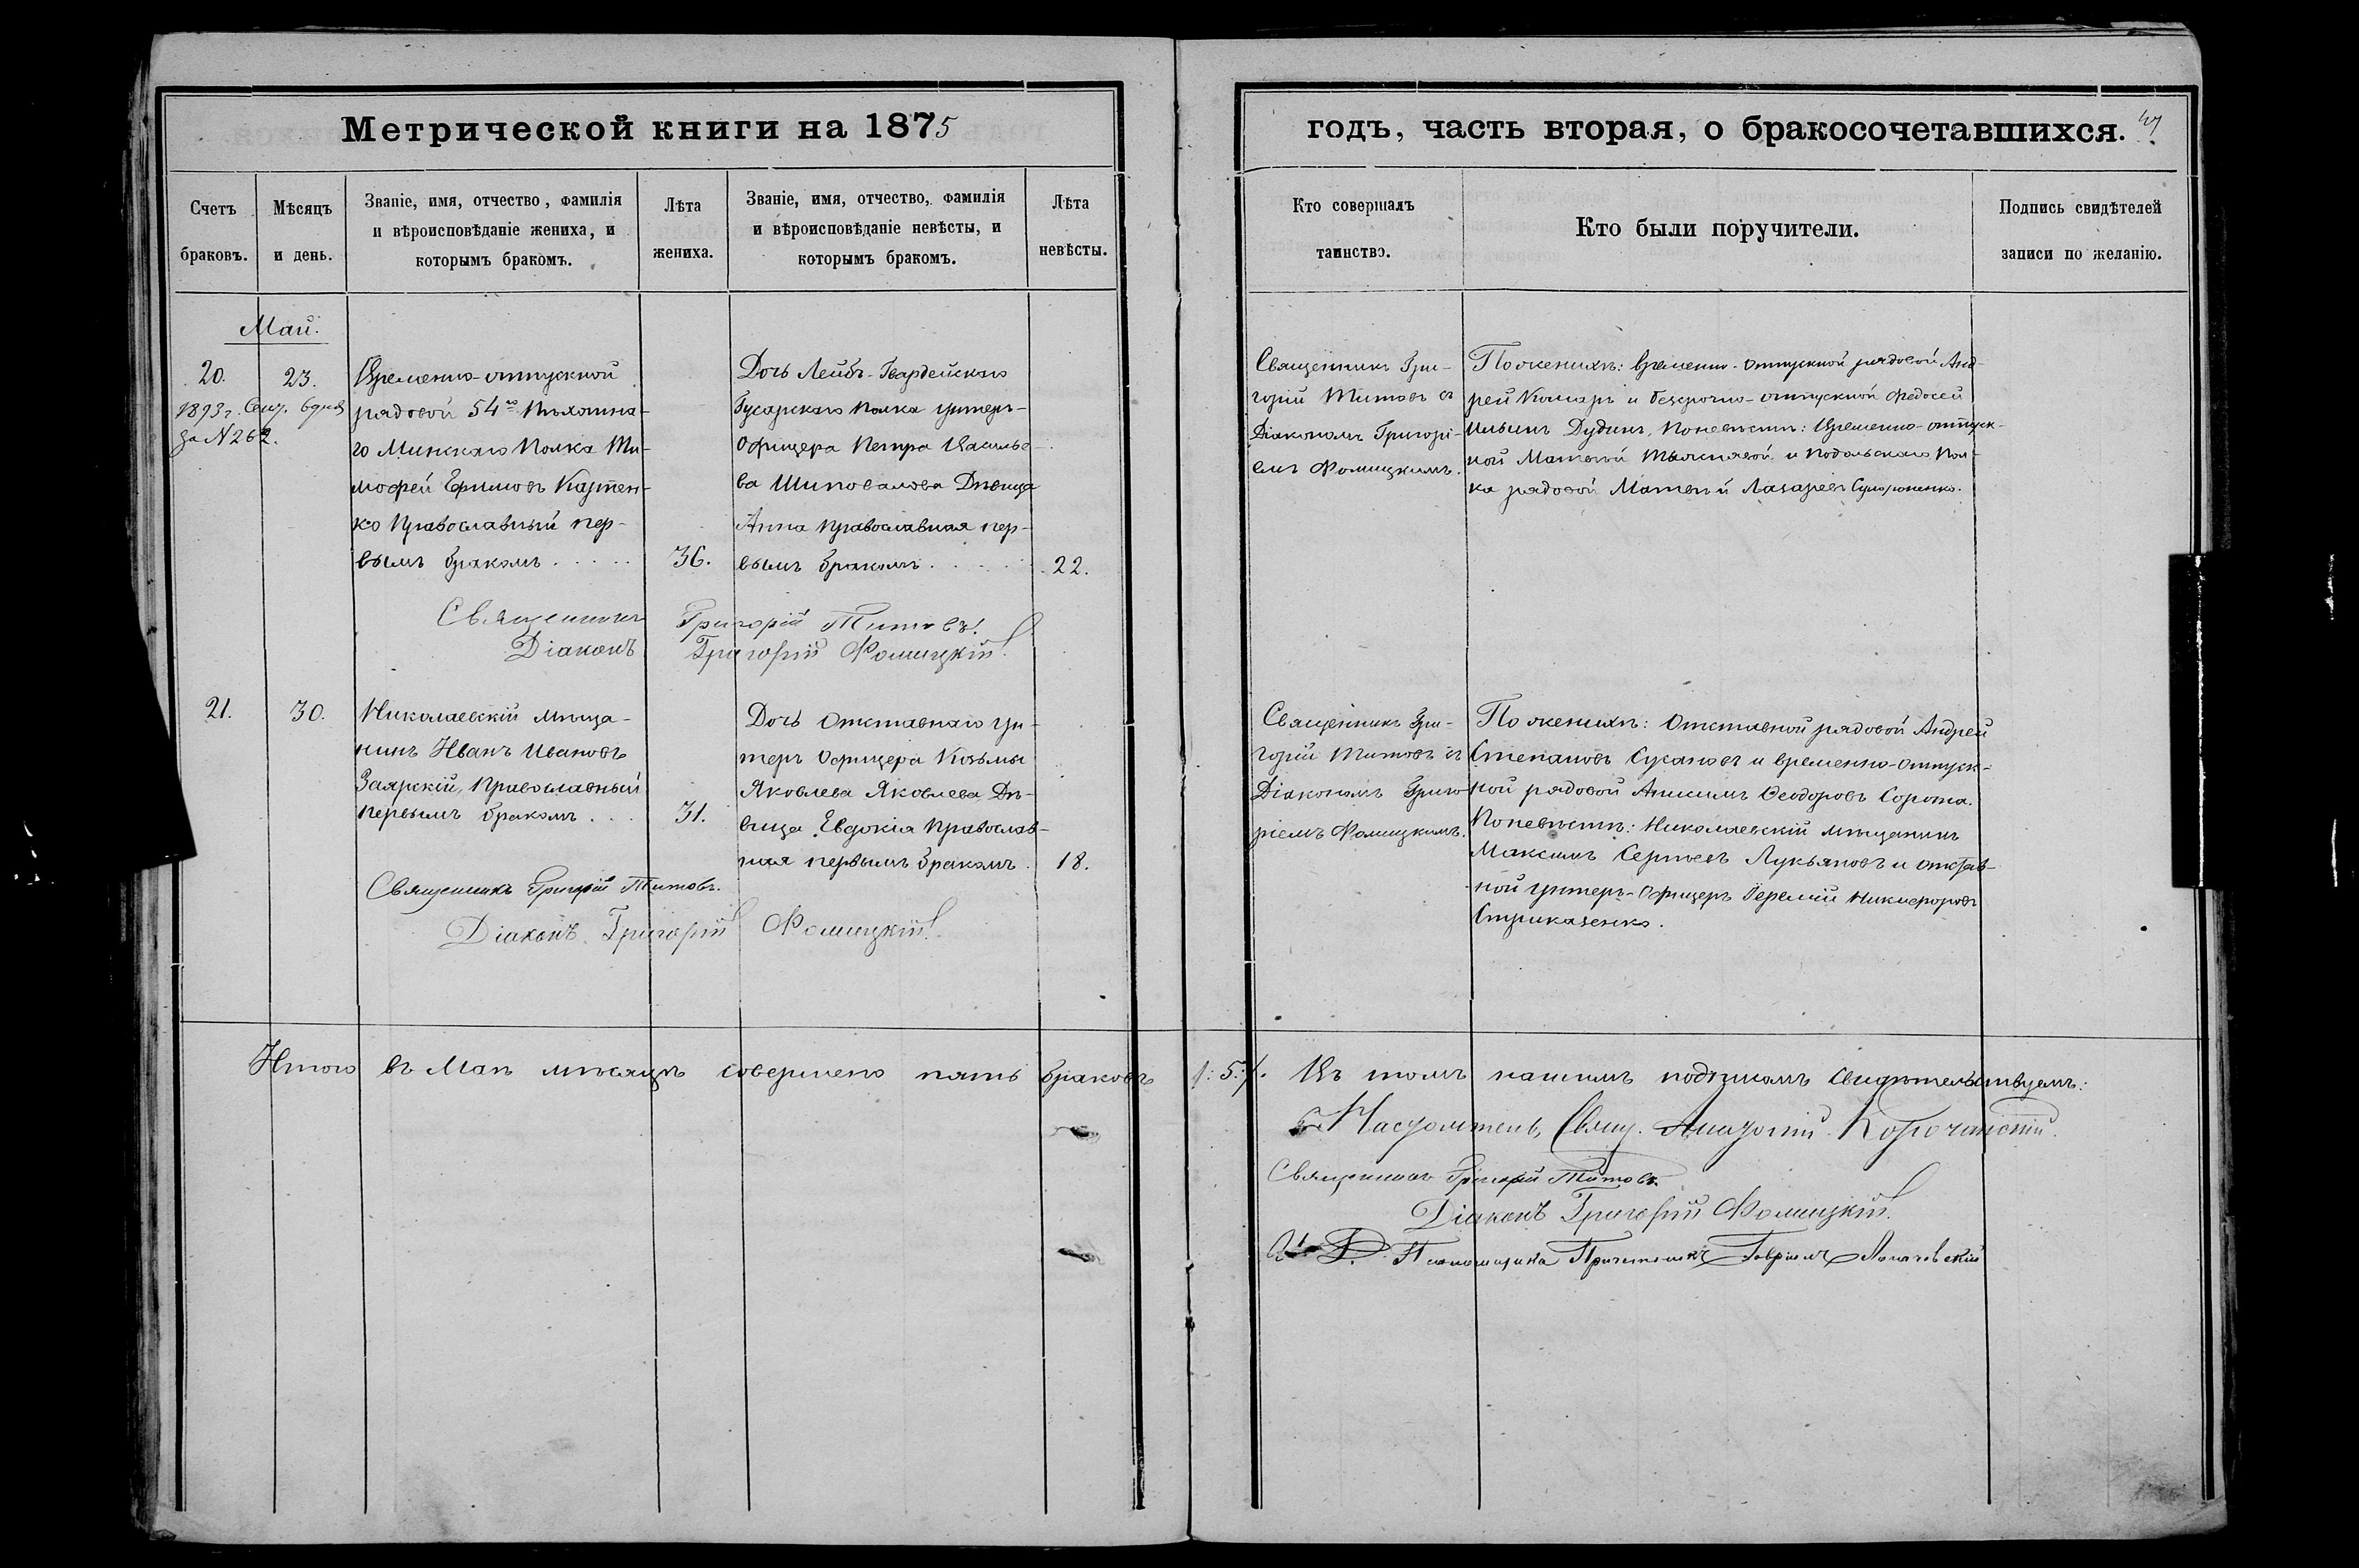 Метрической книги на 1875
годъ, часть вторая, о бракосочетавшихся.
Счетъ
браковъ.
Мѣсяцъ
и день.
Званіе, имя, отчество, фамилія
и вѣроисповѣданіе жениха, и
которымъ бракомъ.
Лѣта
жениха.
Званіе, имя, отчество, фамилія
и вѣроисповѣданіе невѣсты, и
которымъ бракомъ.
Лѣта
невѣсты.
Кто совершалъ
таинство.
Кто были поручители.
Подпись свидѣтелей
записи по желанію.
Май.
20.
1893г.
за N 262.
23.
Временно-отпускной
рядовой 54го Пѣхотна-
го Минскаго Полка Ти-
мофей Ефимовъ Картен-
ко Православный пер-
вымъ бракомъ . . . . .
36.
Дочь Лейбъ-Гвардейскаго
Гусарскаго Полка унтеръ-
Офицера Петра Василье-
ва Шиповалова Дѣвица
Анна Православная пер-
вымъ бракомъ . . . . .
22.
Священникъ Гри-
горій Титовъ съ
Діакономъ Григорі-
емъ Фомицкимъ.
По женихѣ: временно-отпускной рядовой Анд-
рей Комаръ и безсрочно-отпускной Федосей
Ильинъ Дудинъ, По невѣстѣ: Временно-отпуск-
ной Матвѣй и Подольскаго Пол-
ка рядовой Матвѣй Лазаревъ
Священникъ Григорій Титовъ.
Діаконъ Григорій Фомицкій.
21.
30.
Николаевскій мѣща-
нинъ Иванъ Ивановъ
Заярскій, Православный
первымъ бракомъ . . .
31.
Дочь Отставнаго ун-
теръ Офицера Козьмы
Яковлева Яковлева Дѣ-
вица Евдокія Православ-
ная первымъ бракомъ.
18.
Священникъ Гри-
горій Титовъ съ
Діакономъ Григо-
ріемъ Фомицкимъ.
По женихѣ: Отставной рядовой Андрей
Степановъ Сусановъ и временно-отпуск-
ной рядовой Анисимъ Ѳеодоровъ Сорока.
По невѣстѣ: Николаевскій мѣщанинъ
Максимъ Сергѣевъ Лукьяновъ и отстав-
ной унтеръ-Офицеръ Іеремій Никифоровъ
Стриказенко.
Священникъ Григорій Титовъ.
Діаконъ Григорій Фомицкій.
Итого въ Маѣ мѣсяцѣ совершено пять браковъ /:5:/. Въ томъ нашимъ подписомъ свидѣтельствуемъ:
Настоятель, Свящ.
Священникъ Григорій Титовъ.
Діаконъ Григорій Фомицкій.
И. Д. Псаломщика Причетникъ Гавріилъ